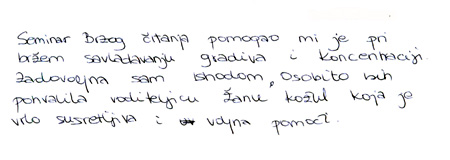 Seminar Brzog čitanja pomogao mi je pri
bržem savladavanju gradiva i koncentraciji.
Zadovoljna sam ishodom, osobito bih
pohvalila voditeljicu Žanu Kožul koja je
vrlo susretljiva i voljna pomoći.